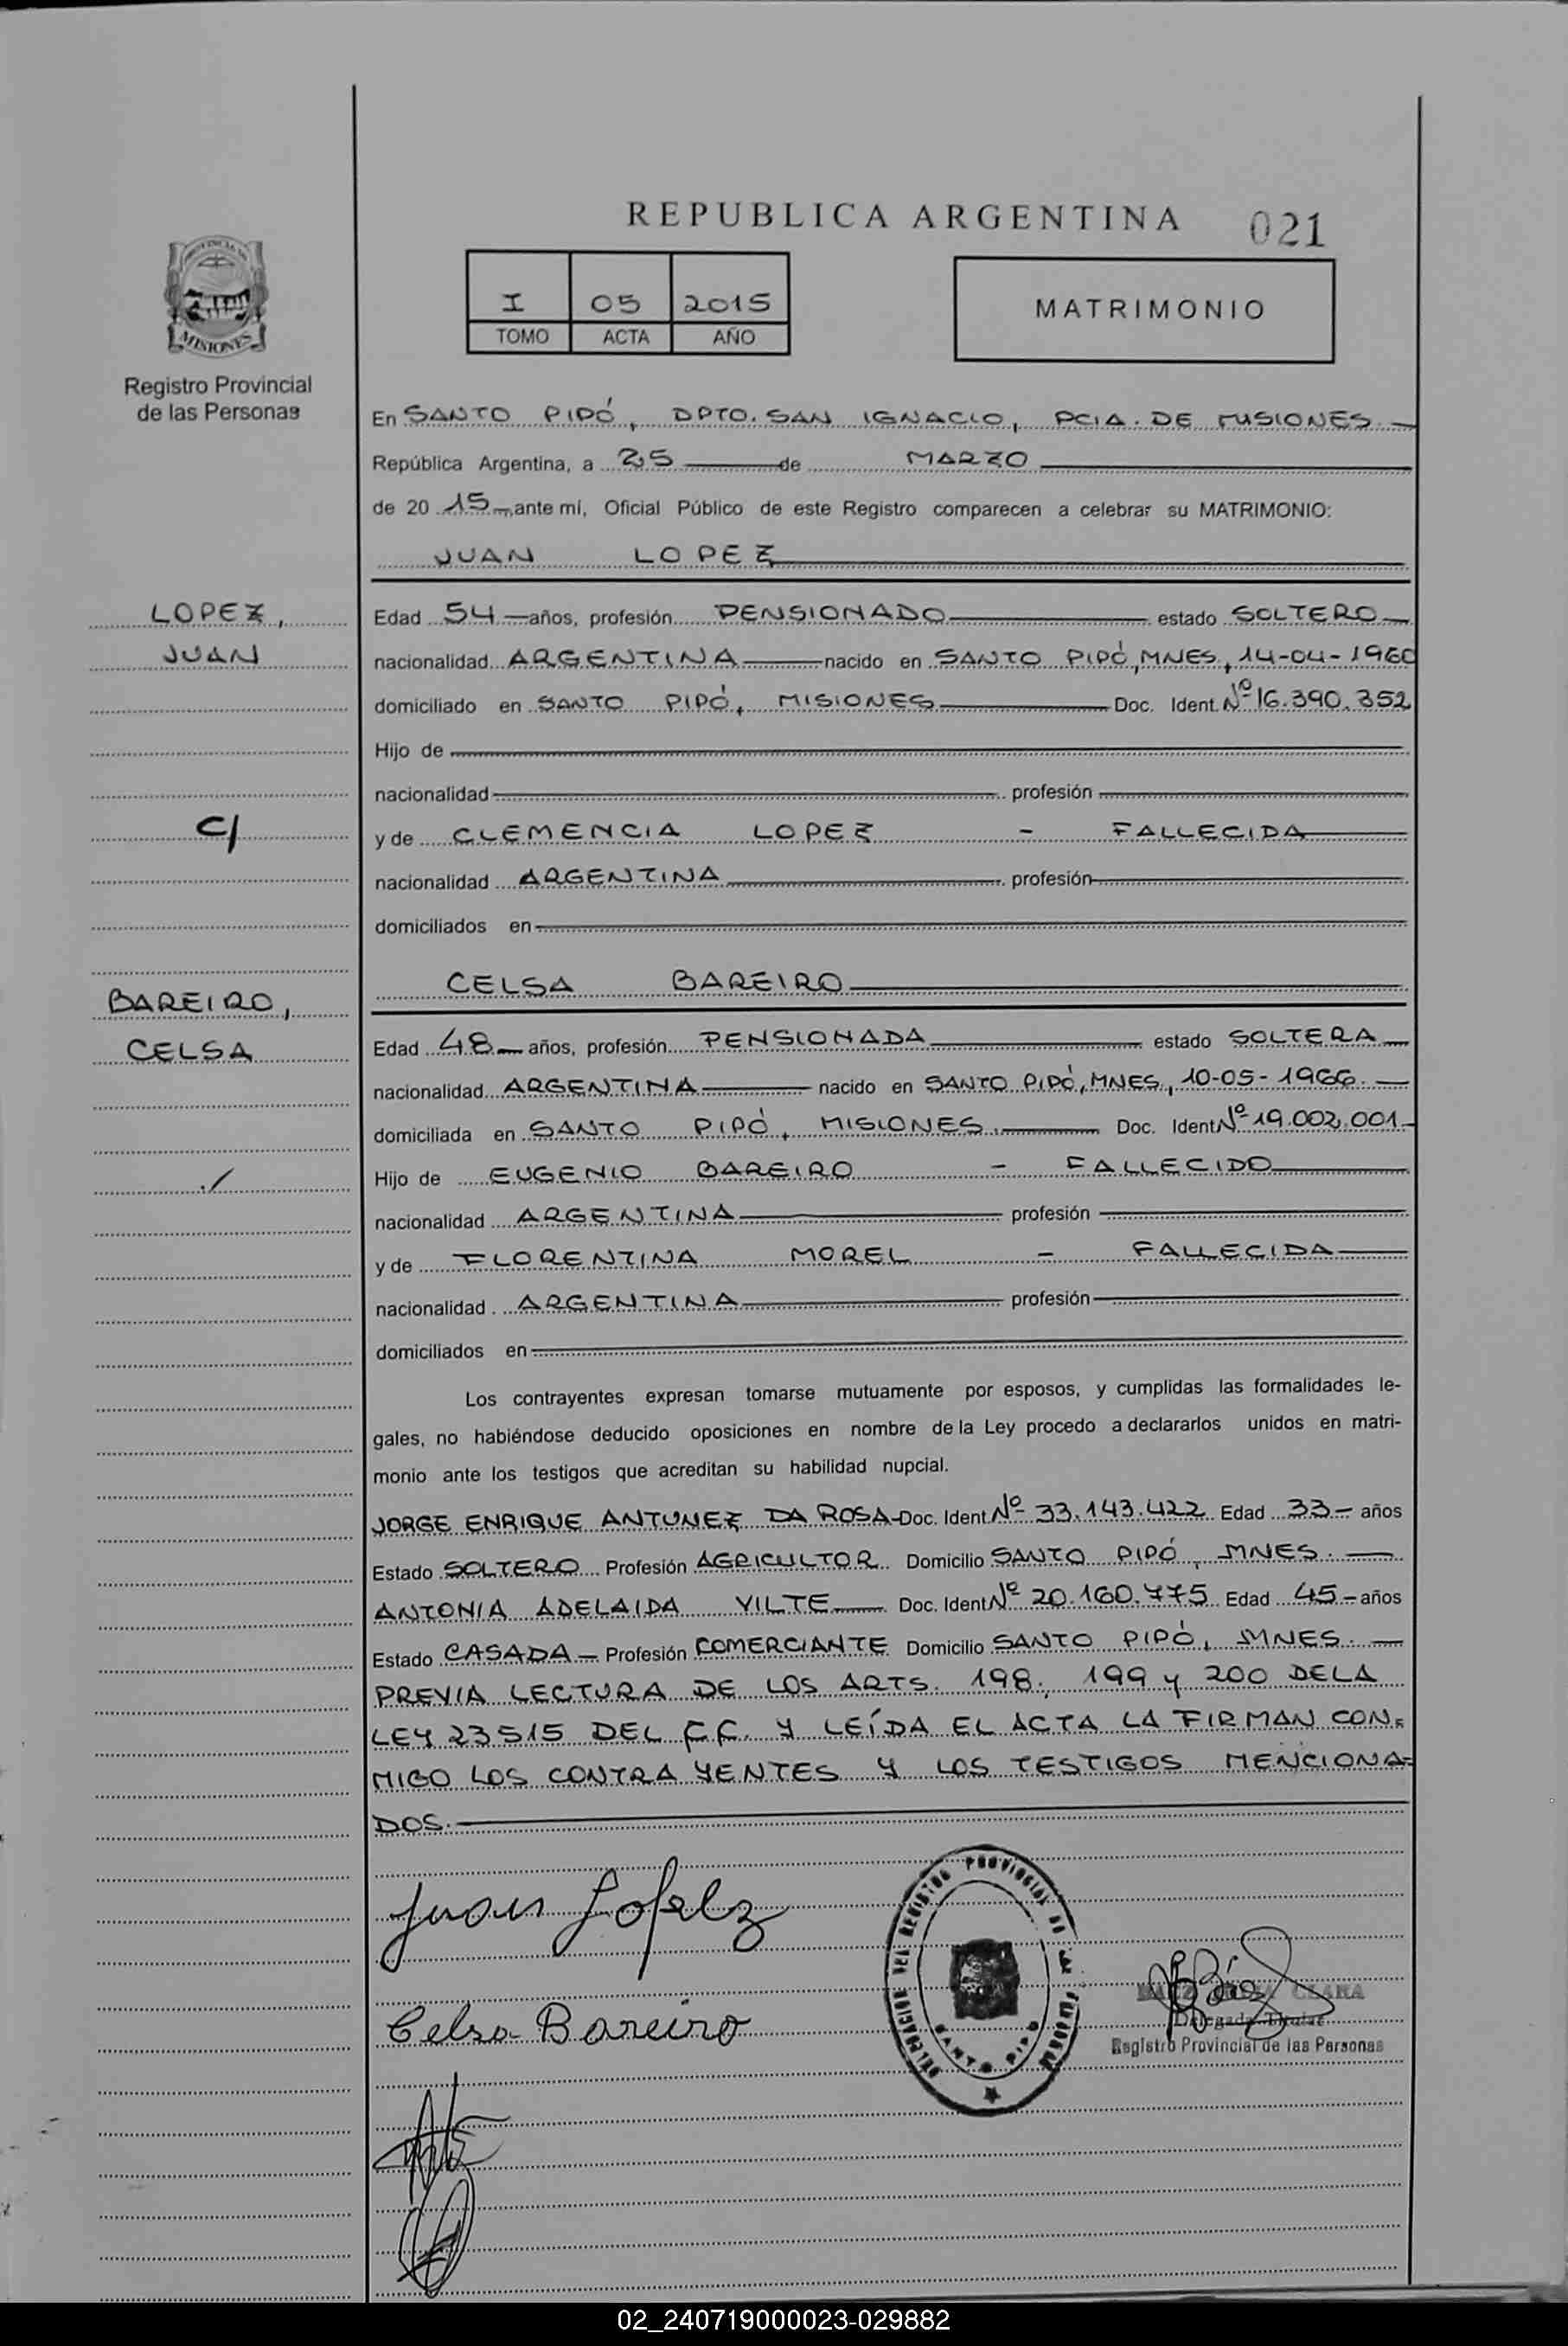 REPUBLICA ARGENTINA 021
I 05 2015
TOMO ACTA AÑO
MATRIMONIO
PROVINCIA DE
MISIONES
Registro Provincial
de las Personas
En SANTO PIPÓ, DPTO. SAN IGNACIO, PCIA. DE MISIONES.
República Argentina, a 25 de MARZO
de 20 15 ante mí, Oficial Público de este Registro comparecen a celebrar su MATRIMONIO:
JUAN LOPEZ
LOPEZ,
JUAN
C/
BAREIRO,
CELSA
Edad 54 años, profesión PENSIONADO estado SOLTERO
nacionalidad ARGENTINA nacido en SANTO PIPÓ, MNES, 14-04-1960
domiciliado en SANTO PIPÓ, MISIONES Doc. Ident. Nº 16.390.352
Hijo de
nacionalidad profesión
y de CLEMENCIA LOPEZ - FALLECIDA
nacionalidad ARGENTINA profesión
domiciliados en
CELSA BAREIRO
Edad 48 años, profesión PENSIONADA estado SOLTERA
nacionalidad ARGENTINA nacido en SANTO PIPÓ, MNES, 10-05-1966.
domiciliada en SANTO PIPÓ, MISIONES. Doc. Ident Nº 19.002.001
Hijo de EUGENIO BAREIRO - FALLECIDO
nacionalidad ARGENTINA profesión
y de FLORENTINA MOREL - FALLECIDA
nacionalidad ARGENTINA profesión
domiciliados en
Los contrayentes expresan tomarse mutuamente por esposos, y cumplidas las formalidades le-
gales, no habiéndose deducido oposiciones en nombre de la Ley procedo a declararlos unidos en matri-
monio ante los testigos que acreditan su habilidad nupcial.
JORGE ENRIQUE ANTUNEZ DA ROSA Doc. Ident. Nº 33.143.422 Edad 33 años
Estado SOLTERO Profesión AGRICULTOR Domicilio SANTO PIPÓ, MNES.
ANTONIA ADELAIDA VILTE Doc. Ident. Nº 20.160.775 Edad 45 años
Estado CASADA Profesión COMERCIANTE Domicilio SANTO PIPÓ, MNES.
PREVIA LECTURA DE LOS ARTS. 198, 199 y 200 DE LA
LEY 23515 DEL C.C. Y LEÍDA EL ACTA LA FIRMAN CON=
MIGO LOS CONTRAYENTES Y LOS TESTIGOS MENCIONA=
DOS.
Juan Lopez
Celsa Bareiro
DELEGACION DEL REGISTRO PROVINCIAL DE LAS PERSONAS
SANTO PIPO
CLARA
Delegada Titular
Registro Provincial de las Personas
02_240719000023-029882